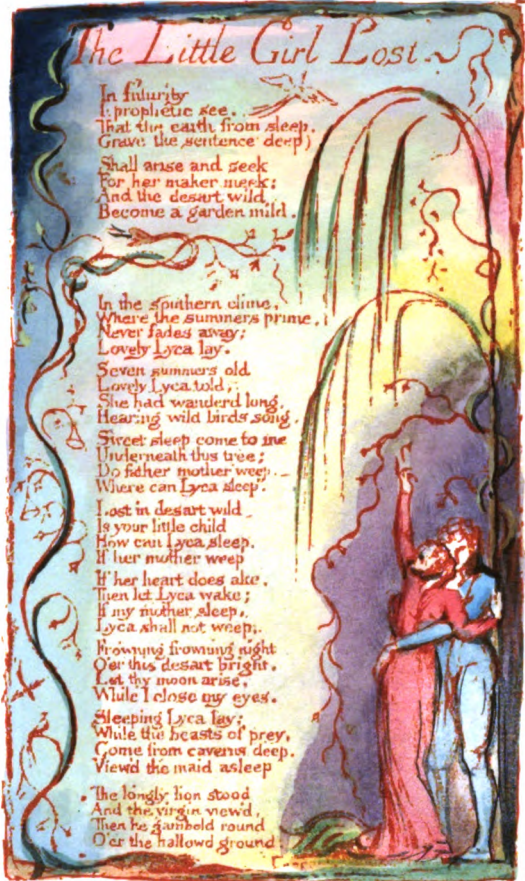 The Little Girl Lost
In futurity
I prophetic see,
That the earth from sleep,
(Grave the sentence deep)
Shall arise and seek
For her maker meek:
And the desart wild
Become a garden mild.
In the southern clime,
Where the summers prime,
Never fades away;
Lovely Lyca lay.
Seven summers old
Lovely Lyca told,
She had wanderd long,
Hearing wild birds song.
Sweet sleep come to me
Underneath this tree;
Do father mother weep.
Where can Lyca sleep.
Lost in desart wild
Is your little child
How can Lyca sleep.
If her mother weep
If her heart does ake,
Then let Lyca wake;
If my mother sleep,
Lyca shall not weep.
Frowning frowning night
O'er this desart bright,
Let thy moon arise,
While I close my eyes.
Sleeping Lyca lay;
While the beasts of prey,
Come from caverns deep,
View'd the maid asleep
The kingly lion stood
And the virgin view'd,
Then he gambold round
O'er the hallowd ground